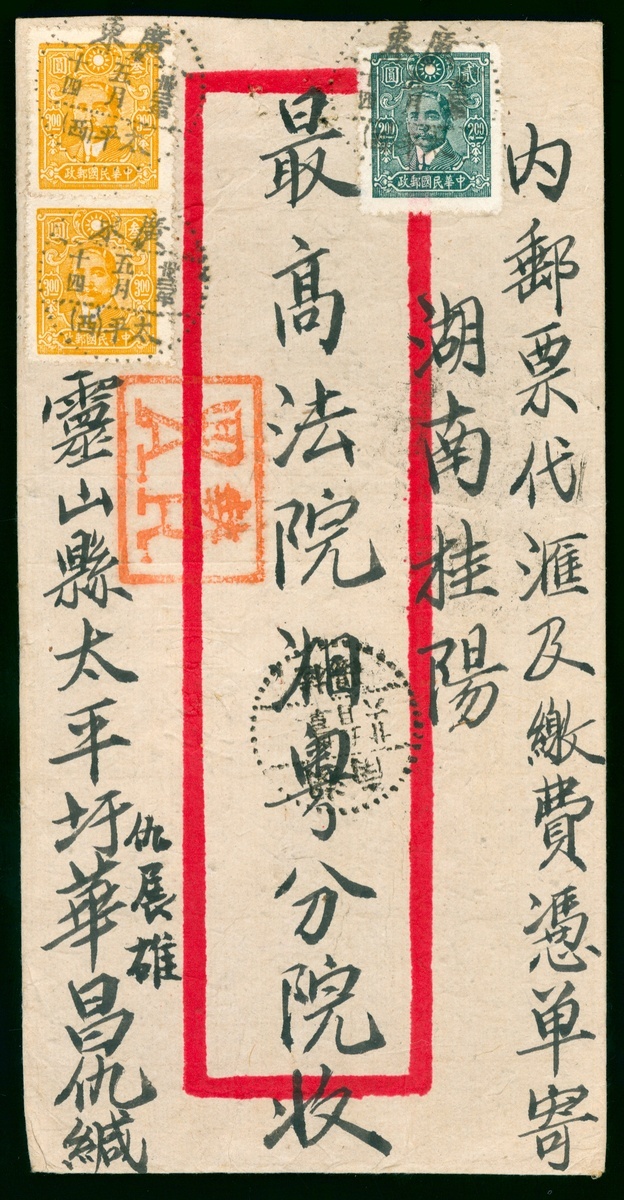 内郵票代滙及繳費憑单寄
湖南桂陽
最高法院湘粤分院收
靈山縣太平圩華昌仇緘
仇展雄
圓 貳
2.00 2.00
中華民國郵政
圓 叁
3.00 3.00
中華民國郵政
圓 叁
3.00 3.00
中華民國郵政
廣東
五月
十四
太平(西)
廣東
五月
十四
太平(西)
廣東
回執
A.R.